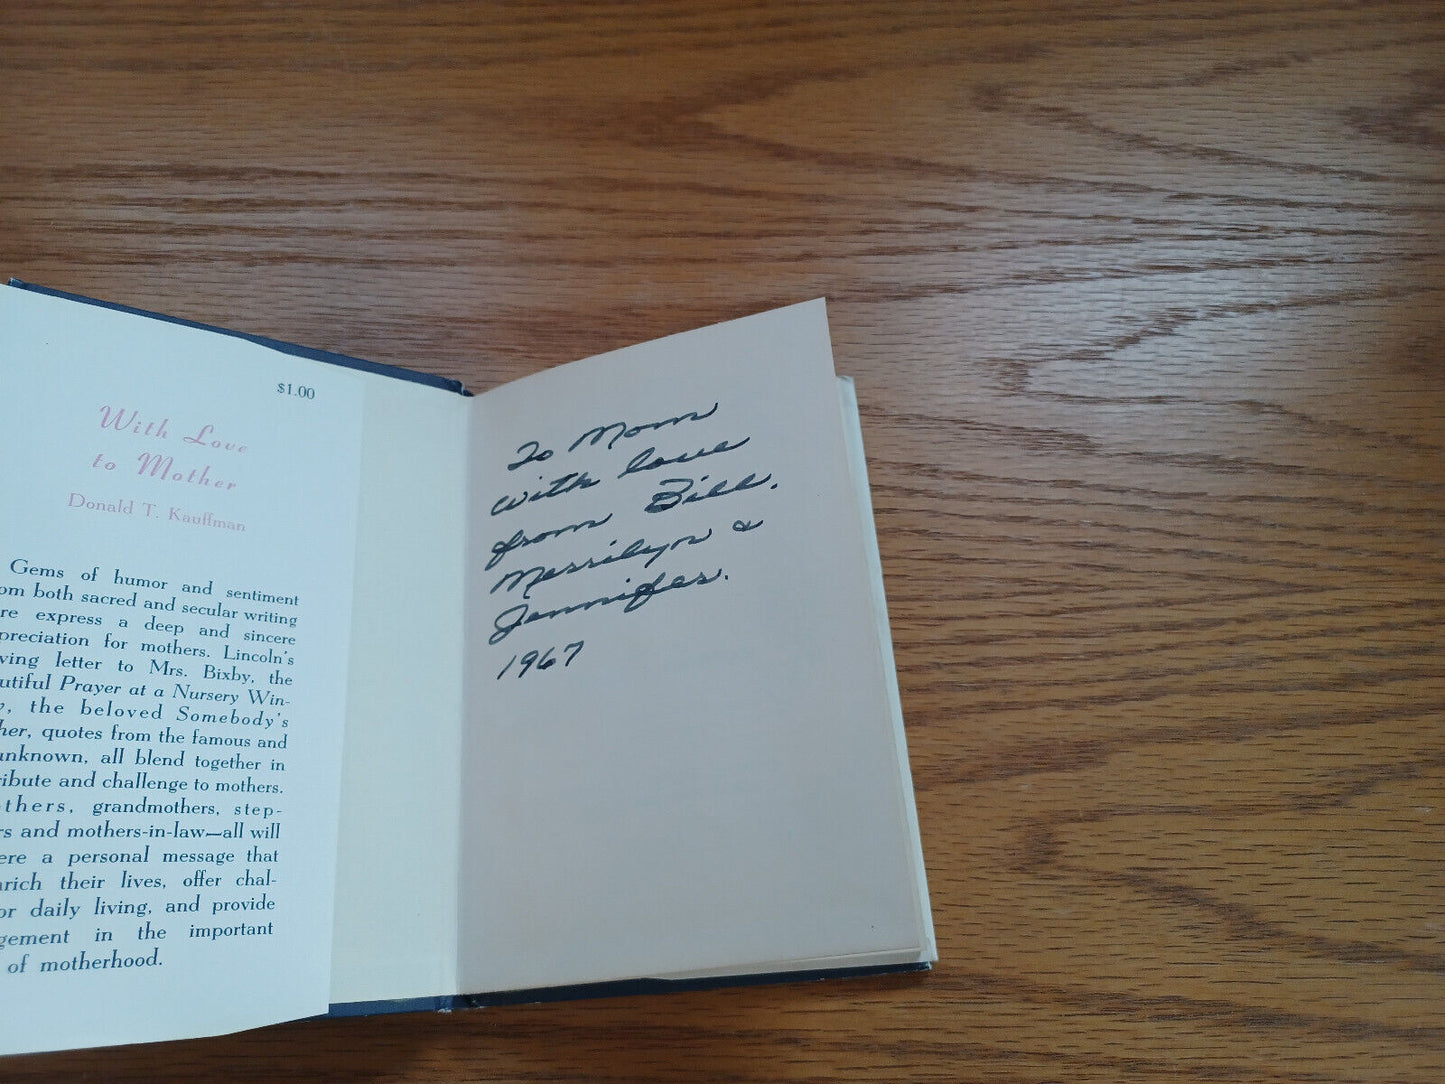 $1.00
With Love
to Mother
Donald T. Kauffman
Gems of humor and sentiment
om both sacred and secular writing
re express a deep and sincere
preciation for mothers. Lincoln's
ving letter to Mrs. Bixby, the
utiful Prayer at a Nursery Win-
, the beloved Somebody's
her, quotes from the famous and
unknown, all blend together in
ribute and challenge to mothers.
thers, grandmothers, step-
rs and mothers-in-law—all will
ere a personal message that
rich their lives, offer chal-
or daily living, and provide
gement in the important
of motherhood.
To Mom
with love
from Bill.
Merrilyn &
Jennifer.
1967